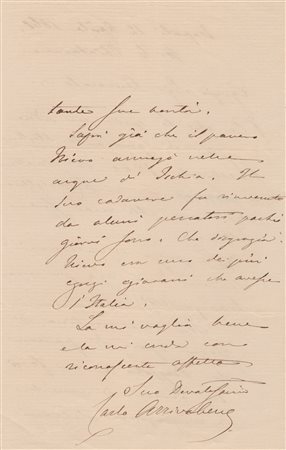 tante sue bontà.
Saprà già che il povero
Nievo annegò nelle
acque d' Ischia. Il
suo cadavere fu rinvenuto
da alcuni pescatori pochi
giorni sono. Che disgrazia!
Nievo era uno dei più
egregi giovani che avesse
l'Italia.
La mi voglia bene
e la mi creda con
riconoscente affetto
Suo Devotissimo
Carlo Arrivabene